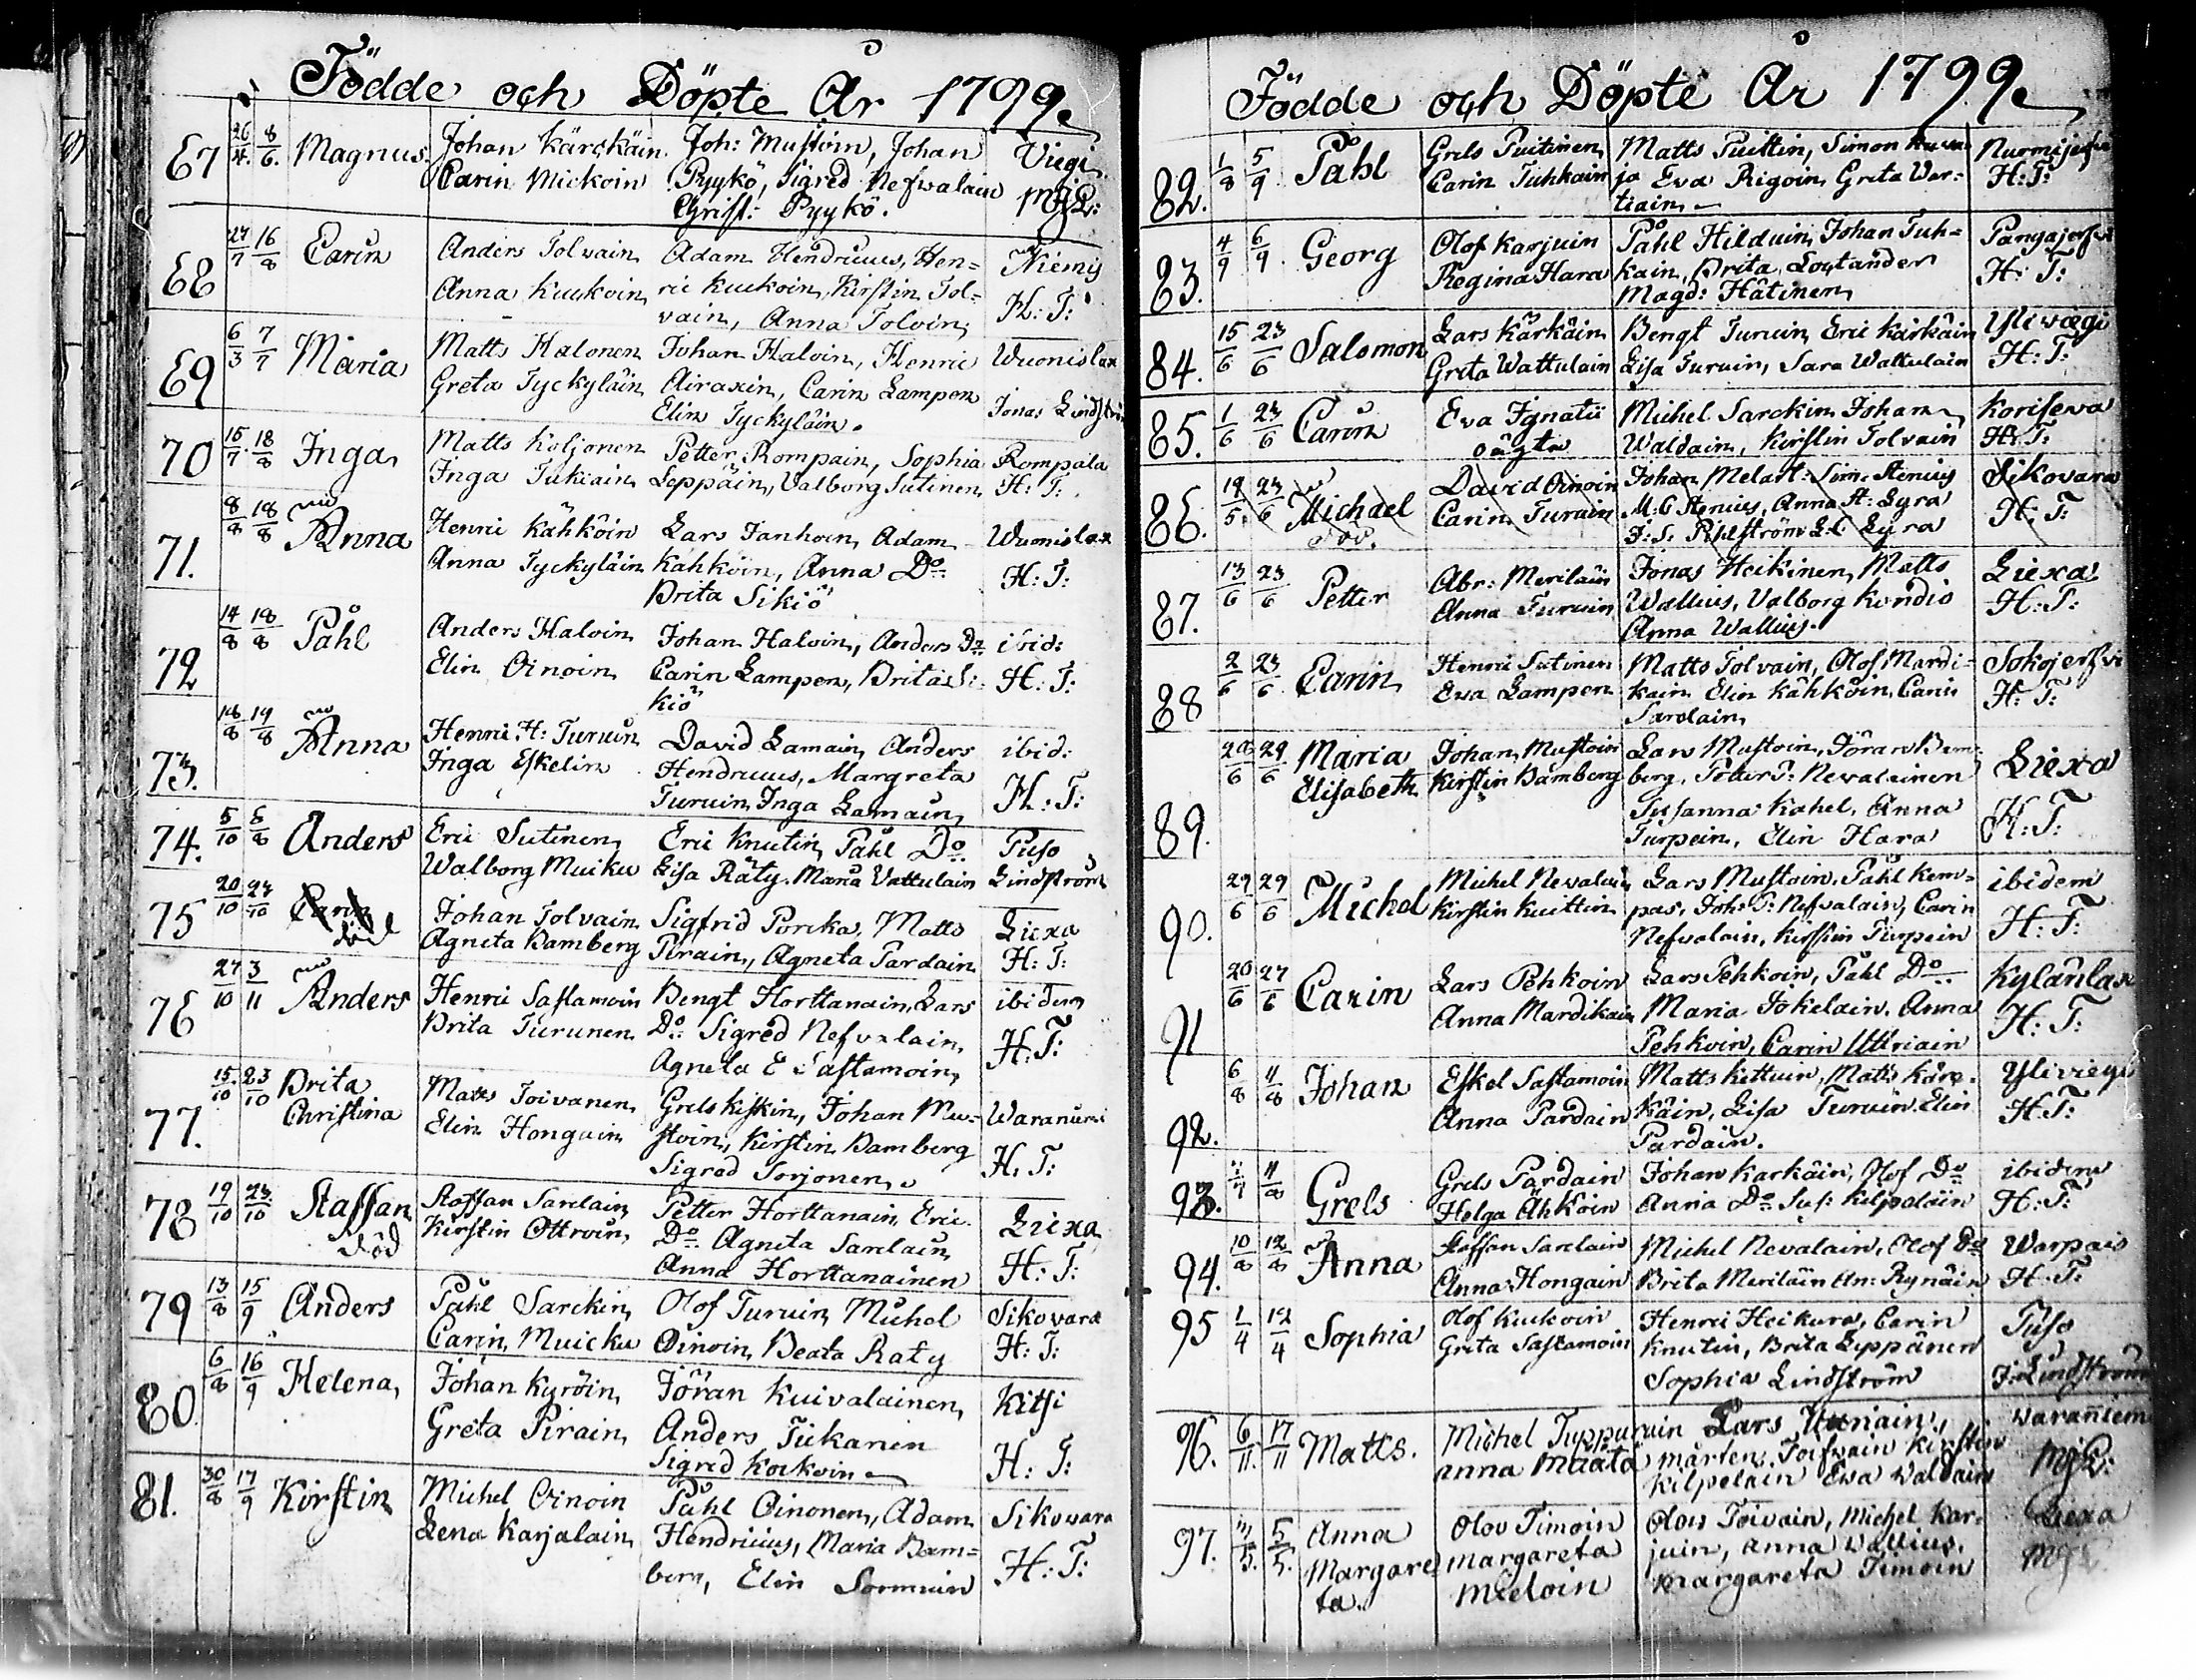 Födde och Döpte År 1799.
67 26/4. 8/6. Magnus. Johan Kärckäin Joh: Mustoin, Johan Viegi
Carin Mickoin Pyykö, Sigred Nefvalain MjL:
Christ: Pyykö.
68 27/7 16/8 Carin Anders Tolvain Adam Hendricius, Hen= Niemis
Anna Kuckoin ric Kuckoin, Kirstin Tol= H: T:
vain, Anna Tolvin,
69 6/3 7/7 Maria Matts Halonen Johan Haloin, Henric Wuonislax
Greta Tyckyläin Airaxin, Carin Lampen Jonas Lindström
Elin Tyckyläin.
70 15/7 18/8 Inga Matts Koljonen Petter Rompain, Sophia Rompala
Inga Tukiain Leppäin, Valborg Sutinen H: T:
71. 8/8 18/8 Anna Henric Kähköin Lars Janhoin, Adam Wuonislax
Anna Tyckyläin Kahköin, Anna Do: H: T:
Brita Sikiö
72 14/8 18/8 Påhl Anders Haloin Johan Haloin, Anders Do ibid:
Elin Oinoin Carin Lampen, Brita Si: H: T:
kiö
73. 18/8 19/8 Anna Henric H: Turuin David Lamain, Anders ibid:
Inga Eskelin Hendricius, Margreta H: T:
Turuin, Inga Lamain
74. 5/10 8/8 Anders Eric Sutinen Eric Knutin, Påhl Do Puso
Walborg Muiku Lisa Räty. Maria Vattulain Lindström
75 20/10 27/10 Carin Johan Tolvain Sigfrid Porcka, Matts Liexa
död Agneta Bamberg Pirain, Agneta Pardain H: T:
76 27/10 3/11 Anders Henric Sastamoin Bengt Horttanain, Lars ibidem
Brita Turunen Do: Sigred Nefvalain, H: T:
Agneta E Sastamoin,
77. 15/10 23/10 Brita Matts Toivanen Grels Kiskin, Johan Mu= Waraniemi
Christina Elin Hongain stoin, Kirstin Bamberg H: T:
Sigred Sorjonen.
78 19/10 23/10 Staffan Staffan Sarelain Petter Horttanain, Eric Liexa
död Kirstin Ottroin, Do: Agneta Sarelain H: T:
Anna Horttanainen
79 13/8 15/9 Anders Påhl Sarckin Olof Turuin, Michel Sikovara
Carin Muicku Oinoin, Beata Raty H: T:
80. 6/8 16/9 Helena Johan Kyröin, Jöran Kuivalainen, Kitsi
Greta Pirain, Anders Tiikanen H: T:
Sigred Kockoin
81. 30/8 17/9 Kirstin Michel Oinoin Påhl Oinonen, Adam Sikovara
Lena Karjalain Hendricius, Maria Bam= H: T:
berg, Elin Sormuin
Födde och Döpte År 1799.
82. 1/8 5/9 Påhl Grels Puitinen Matts Puittin, Simon Nurmijerfvi
Carin Tuhkain ja Eva Rigoin, Greta Var= H: T:
tiain.
83. 4/9 6/9 Georg Olof Karjuin Påhl Hilduin, Johan Tuh= Pangajerfvi
Regina Hara kain, Brita Logtander H: T:
Magd: Hätinen
84. 15/6 23/6 Salomon Lars Kärkäin Bengt Turuin, Eric Kärkäin Yliviegi
Greta Wattulain Lisa Turuin, Sara Wattulain H: T:
85. 1/6 23/6 Carin Eva Ignatii Michel Sarckin, Johan Korisewa
oägta Waldain, Kirstin Tolvain H: T:
86. 19/5. 23/6 Michael David Oinoin Johan Melart: Sim: Stenius Sikovara
Carin Turuin M: C Stenius, Anna H: Lyra H: T:
J: S: Pihlström L: C: Lyra
87. 13/6 23/6 Petter Abr: Meriläin Jonas Heikinen, Matts Liexa
Anna Turuin Wallius, Valborg Kondio H: T:
Anna Wallius.
88 2/6 23/6 Carin Henric Sutinen Matts Tolvain, Olof Mardi= Sokojerfvi
Eva Lampen kain, Elin Kähköin, Carin H: T:
Sarelain
89. 28/6 29/6 Maria Johan Mustoin Lars Mustoin, Jöran Bam= Liexa
Elisabeth Kirstin Bamberg berg, Petter P: Nevalainen H: T:
Susanna Kahel, Anna
Turpein, Elin Hara
90. 29/6 29/6 Michel Michel Nevalain Lars Mustoin, Påhl Kem= ibidem
Kirstin Kuittin pas, Joh: P: Nefvalain, Carin H: T:
Nefvalain, Kirstin Turpein
91 20/6 27/6 Carin Lars Pehkoin Lars Pehkoin, Påhl Do Kylänlax
Anna Mardikain Maria Jokelain, Anna H: T:
Pehkoin, Carin Uttriain
92. 6/8 11/8 Johan Eskel Sastamoin Matts Kettuin, Matts Kärc= Yliviegi
Anna Pardain käin, Lisa Turuin, Elin H: T:
Pardain.
93. 7/7 11/8 Grels Grels Pardain Johan Karkäin, Olof Do ibidem
Helga Ähköin Anna Do: Sus: Kilpeläin H: T:
94. 10/8 12/8 Anna Staffan Sarelain Michel Nevalain, Olof Do Warpais
Anna Hongain Brita Meriläin An: Rynäin H: T:
95 1/4 12/4 Sophia Olof Kuckoin Henric Heikura, Carin Puso
Greta Sastamoin Knutin, Brita Leppänen J: Lindström
Sophia Lindström
96. 6/11. 17/11 Matts. Michel Tuppurain Lars Uuriain, Waraniemi
Anna Määtä Mårten Toifvain Kirstin MjL:
Kilpelain Ewa Waldain
97. 5/5. Anna Olov Timoin Olov Toivain, Michel Kar= Liexa
Margare margareta juin, Anna Wallius. MjL
ta. Mieloin Margareta Timoin